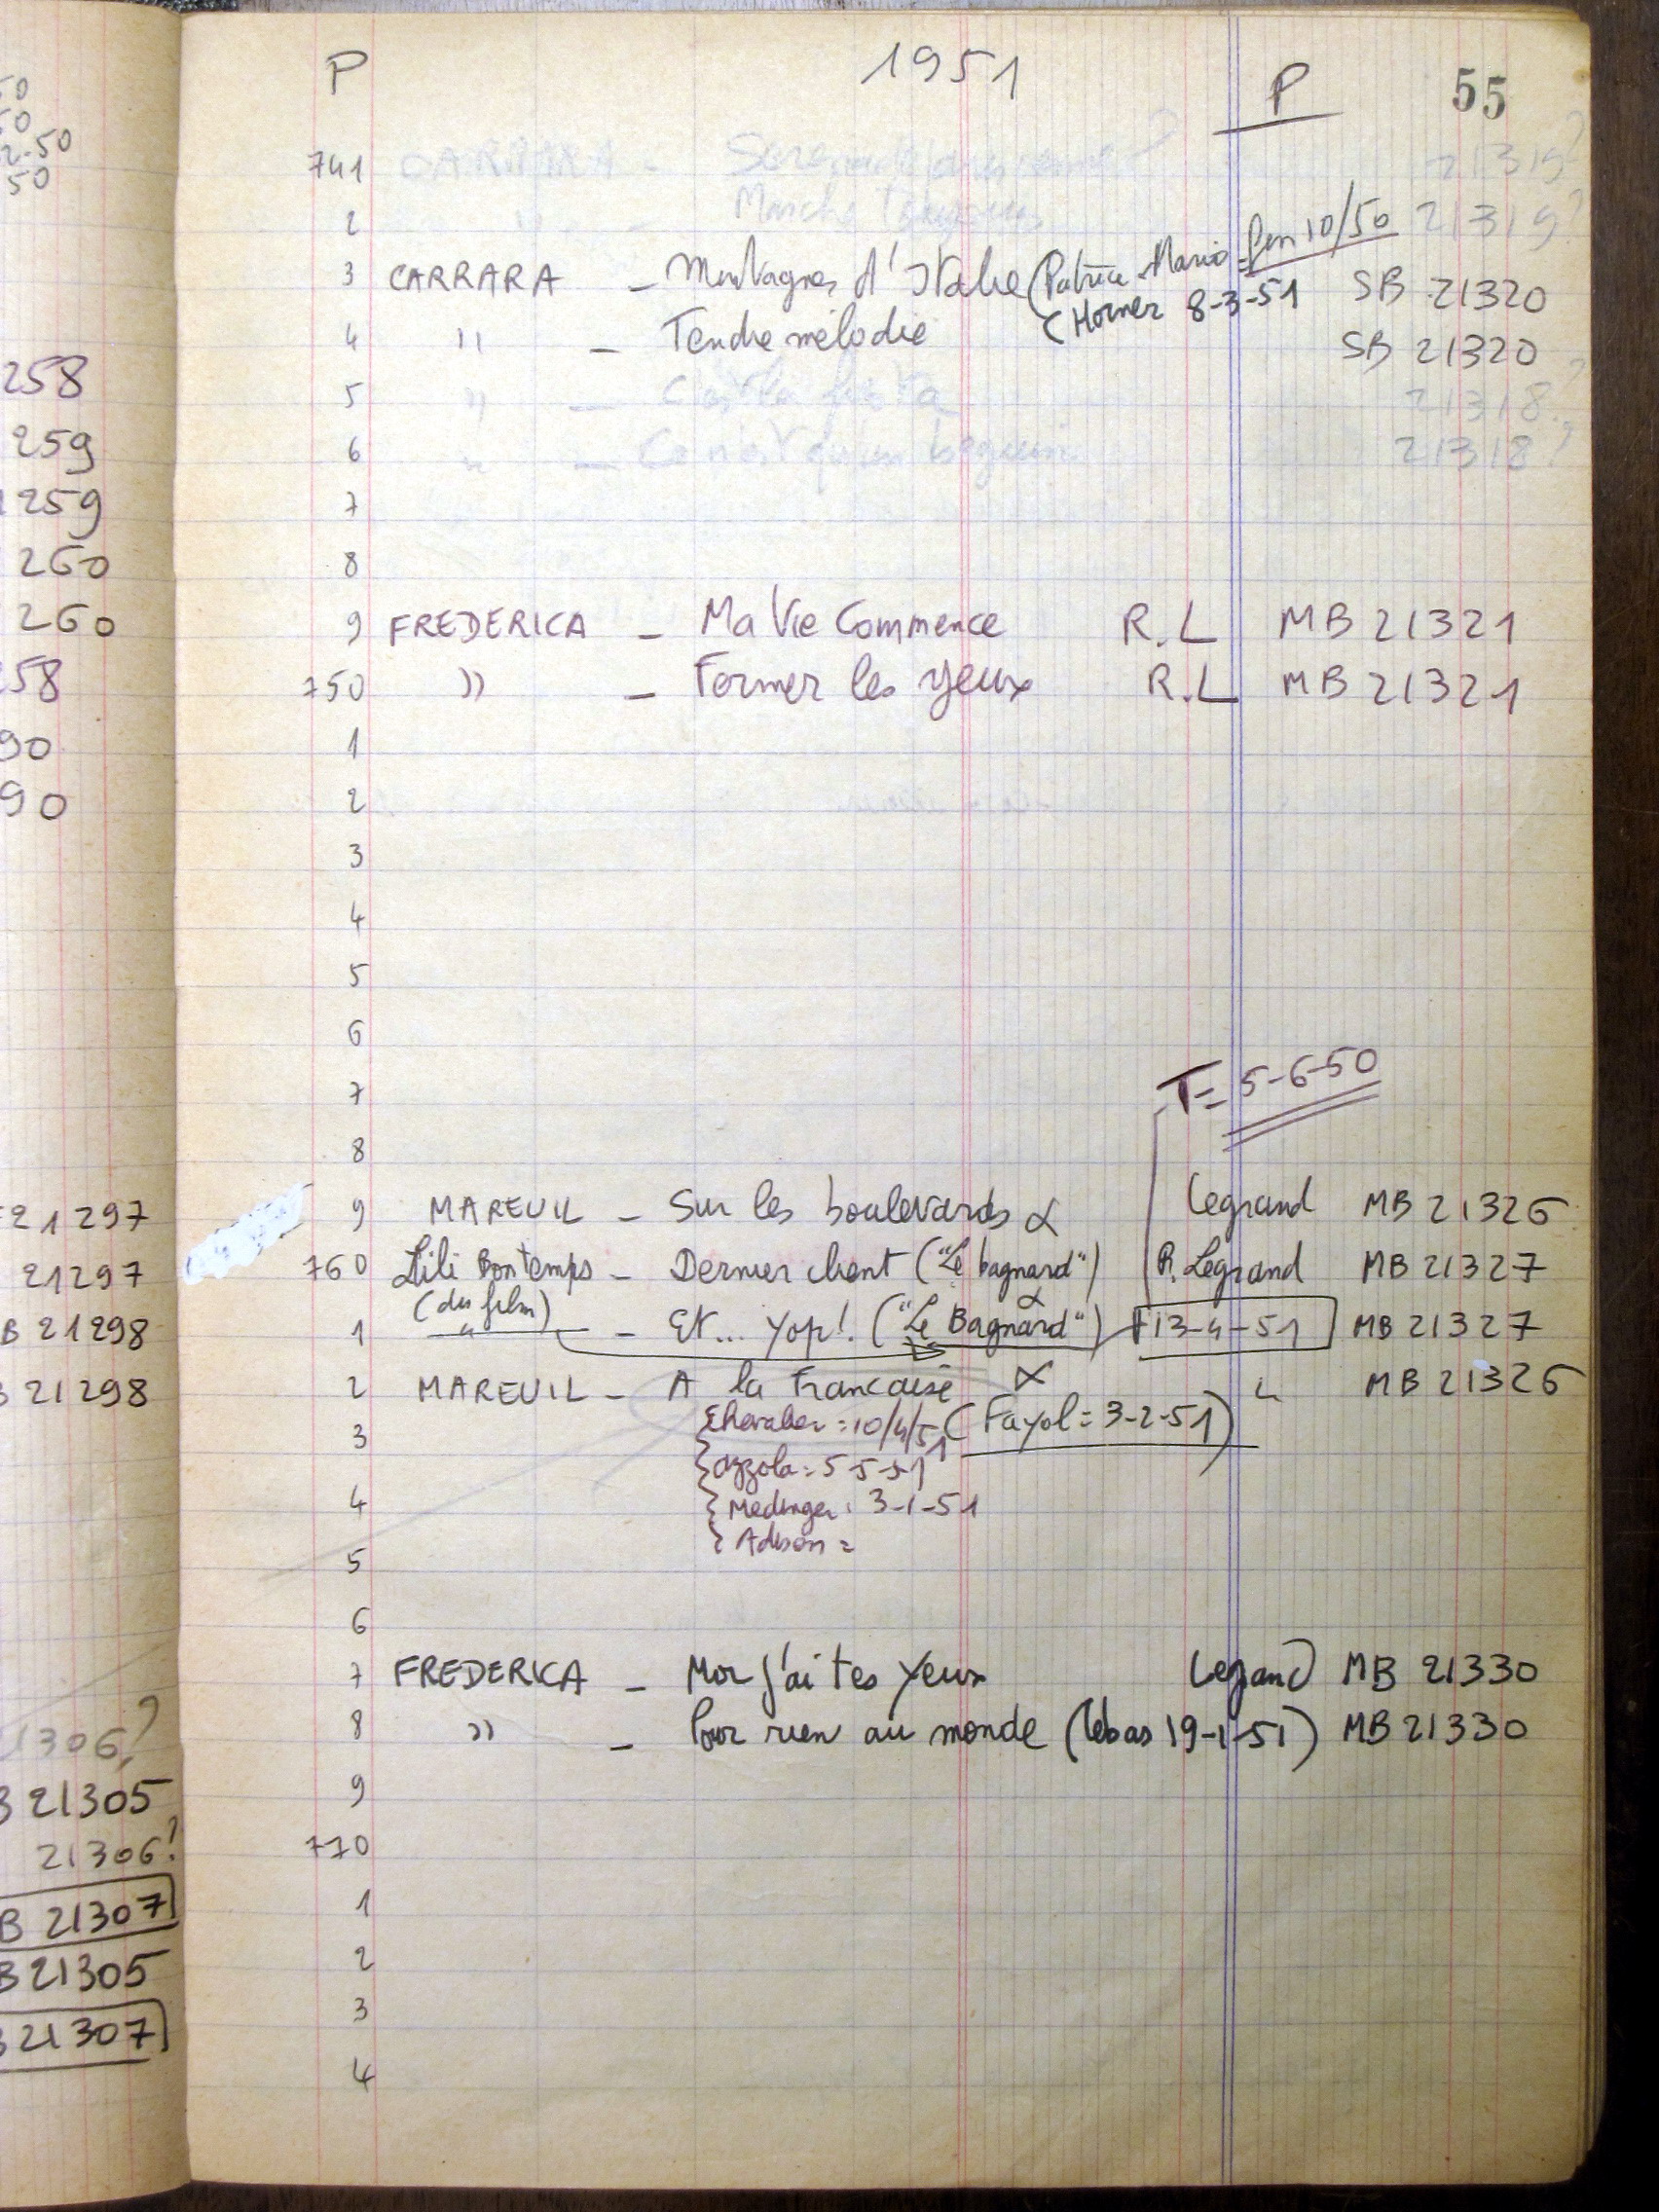 P 1951 P 55
741 CARRARA - Serenade 21319?
2 " Marche 21319?
3 CARRARA - Montagnes d'Italie (Patrice-Mario = fin 10/50 SB 21320
(Horner 8-3-51
4 " - Tendre mélodie SB 21320
5 " - C'est la fiesta 21318?
6 " - Ce n'est qu'un beguin 21318?
7
8
9 FREDERICA - Ma Vie Commence R.L MB 21321
750 " - Fermer les yeux R.L MB 21321
1
2
3
4
5
6
7
T = 5-6-50
8
9 MAREUIL - Sur les boulevards α Legrand MB 21326
760 Lili Bontemps - Dernier client ("Le bagnard") R. Legrand MB 21327
(du film)
1 " - Et... yop! ("Le Bagnard") 13-4-51 MB 21327
2 MAREUIL - A la Francaise α " MB 21326
Chevalier = 10/4/51 (Fayol = 3-2-51)
3
Azzola = 5-5-51
4 Medinger : 3-1-51
Adison =
5
6
7 FREDERICA - Moi j'ai tes yeux Legrand MB 21330
8 " - Pour rien au monde (Lebas 19-1-51) MB 21330
9
770
1
2
3
4
50
50
2.50
50
258
259
259
260
260
58
90
90
21297
21297
B 21298
21298
1306?
21305
21306?
B 21307
B 21305
21307